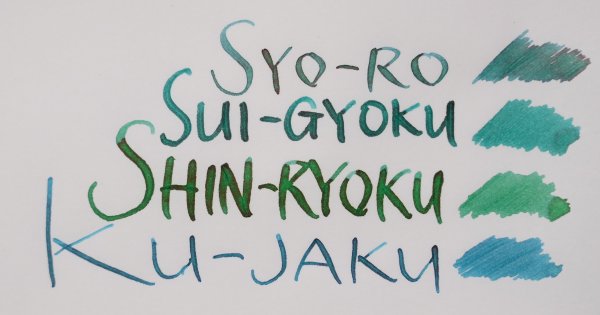 SYO-RO
SUI-GYOKU
SHIN-RYOKU
KU-JAKU